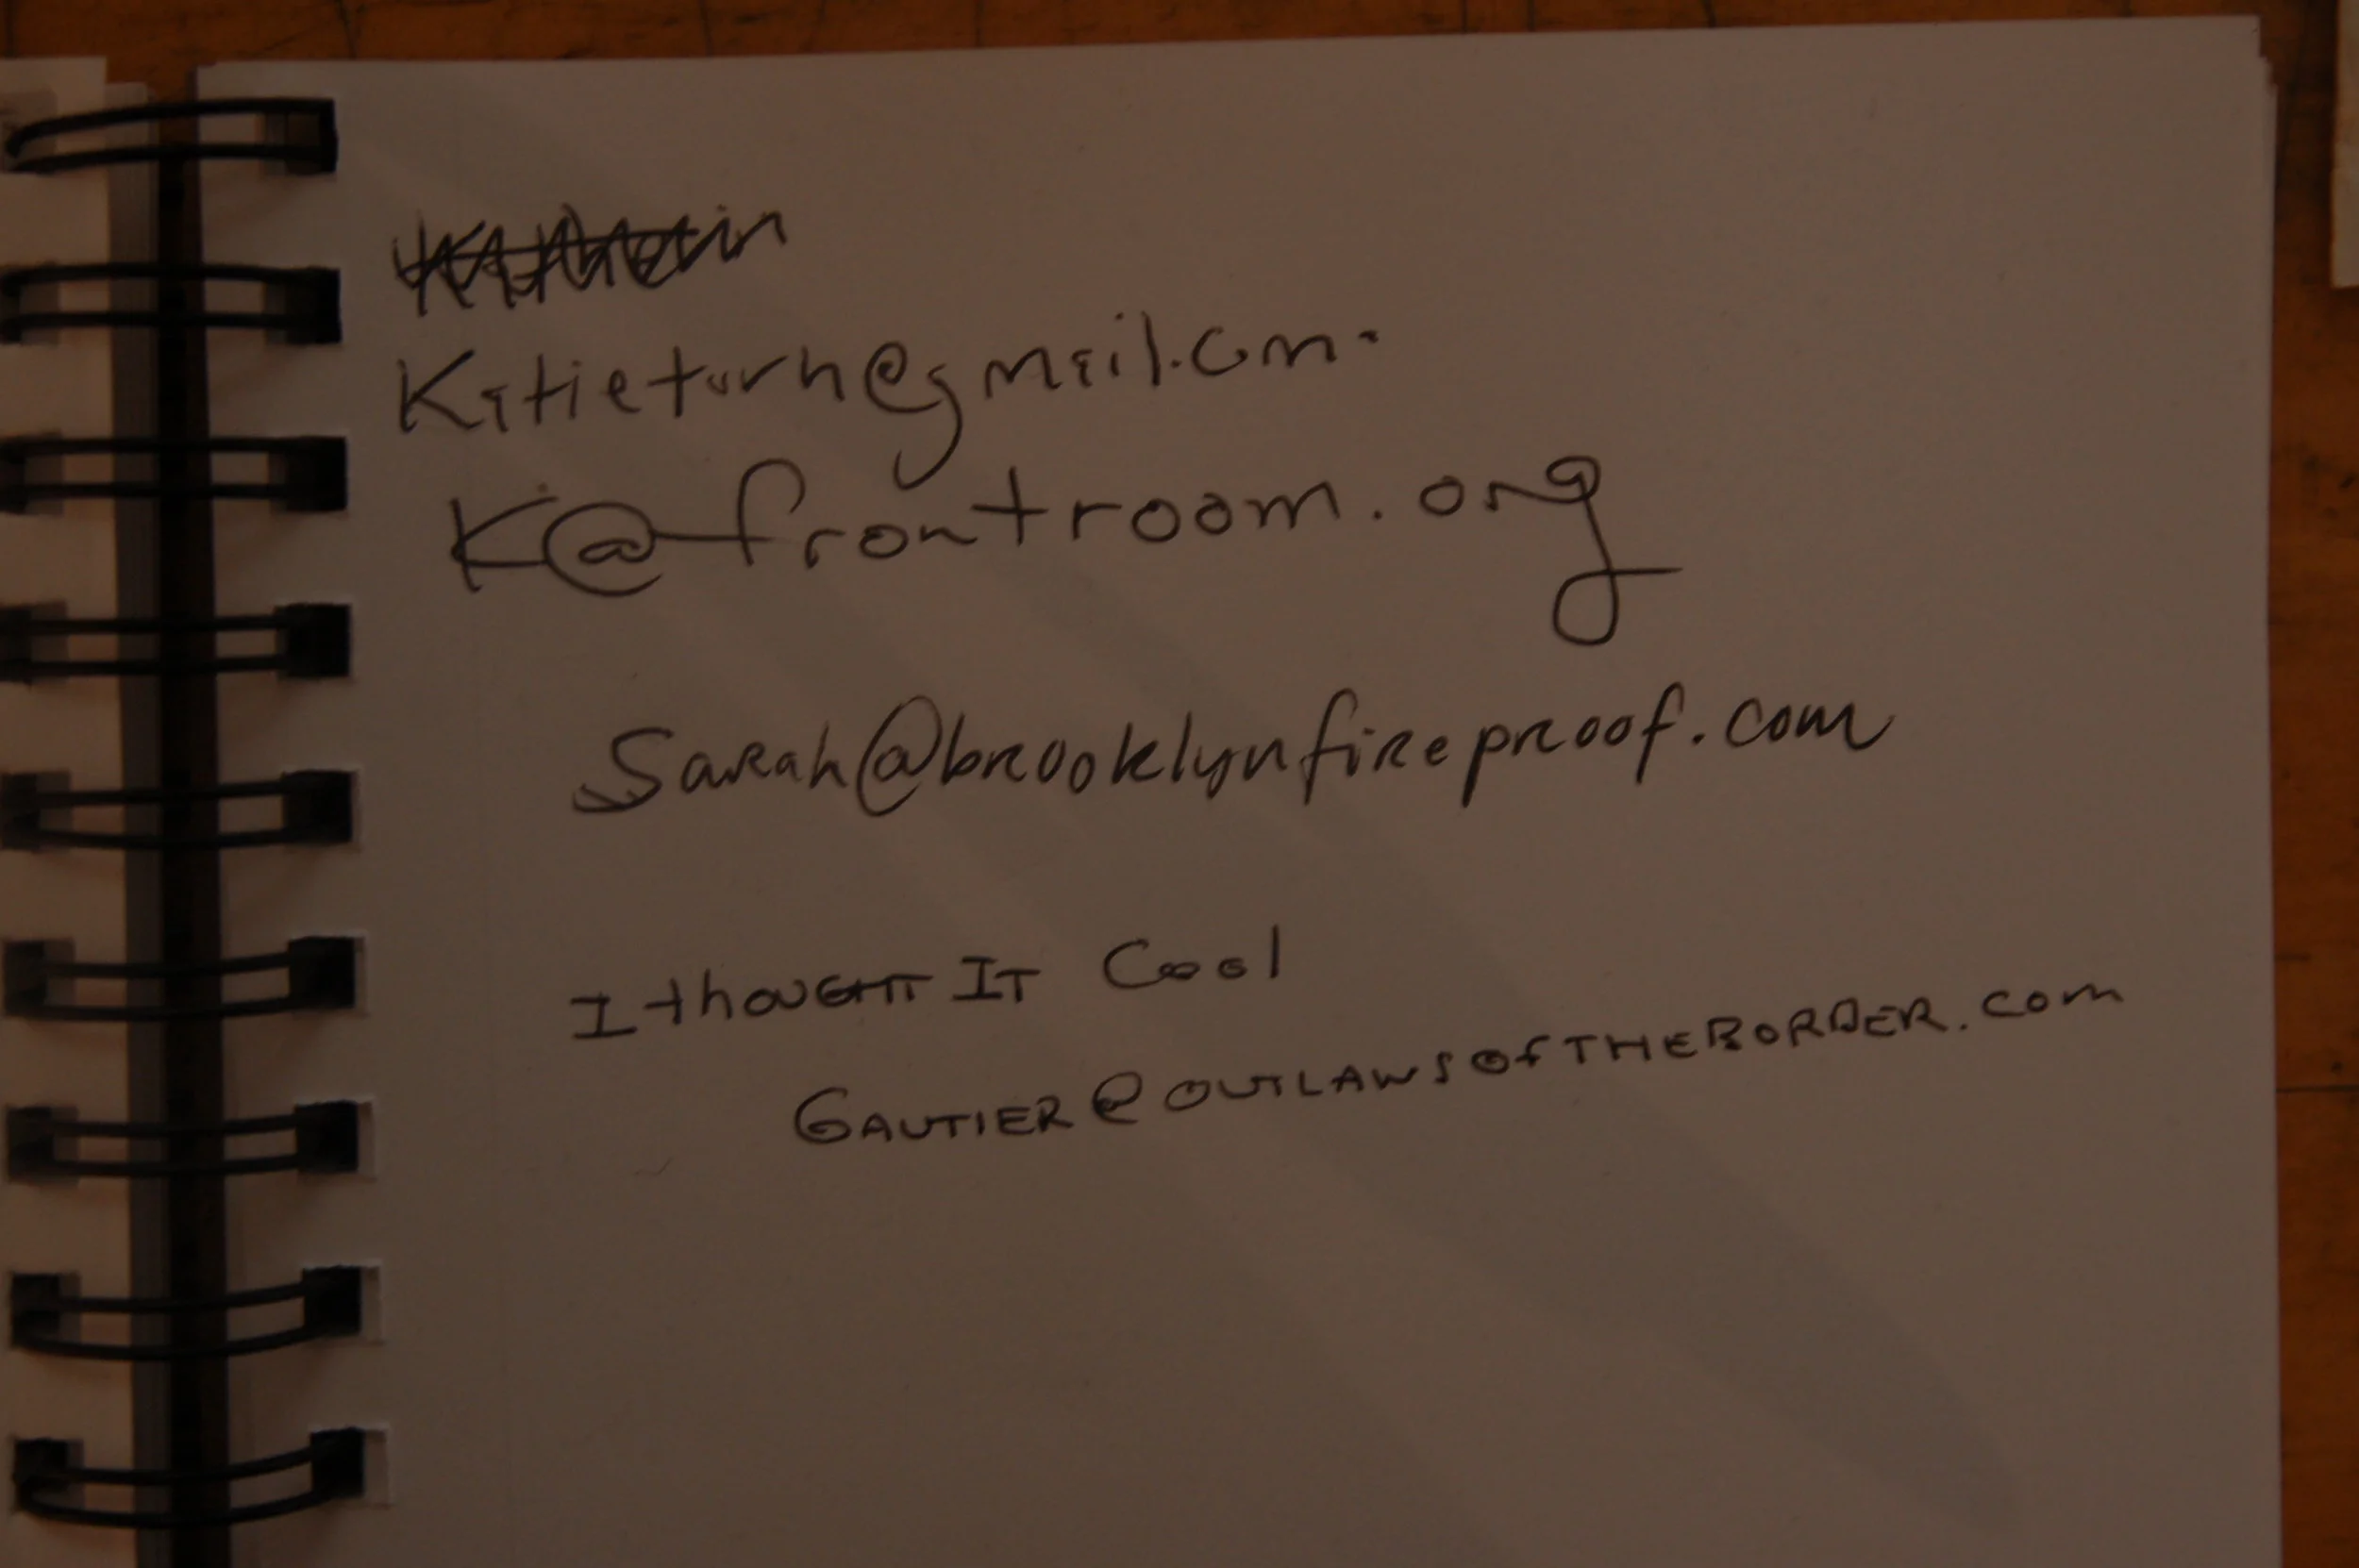 Katieturn@gmail.com.
K@frontroom.org
Sarah@brooklynfireproof.com
I thOUGHT IT Cool
GAUTIER@OUTLAWSOfTHEBORDER.com